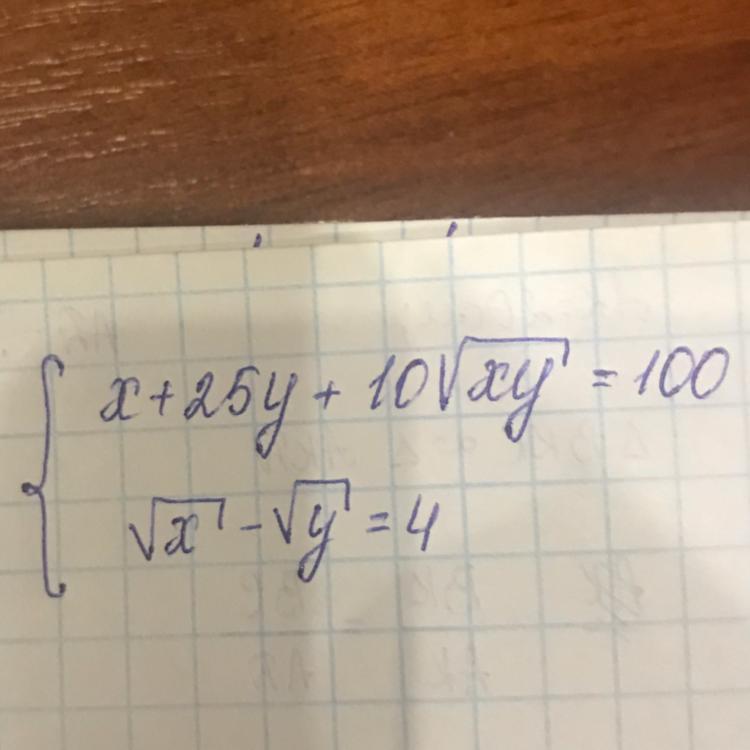 x+25y+10√xy=100
√x-√y=4